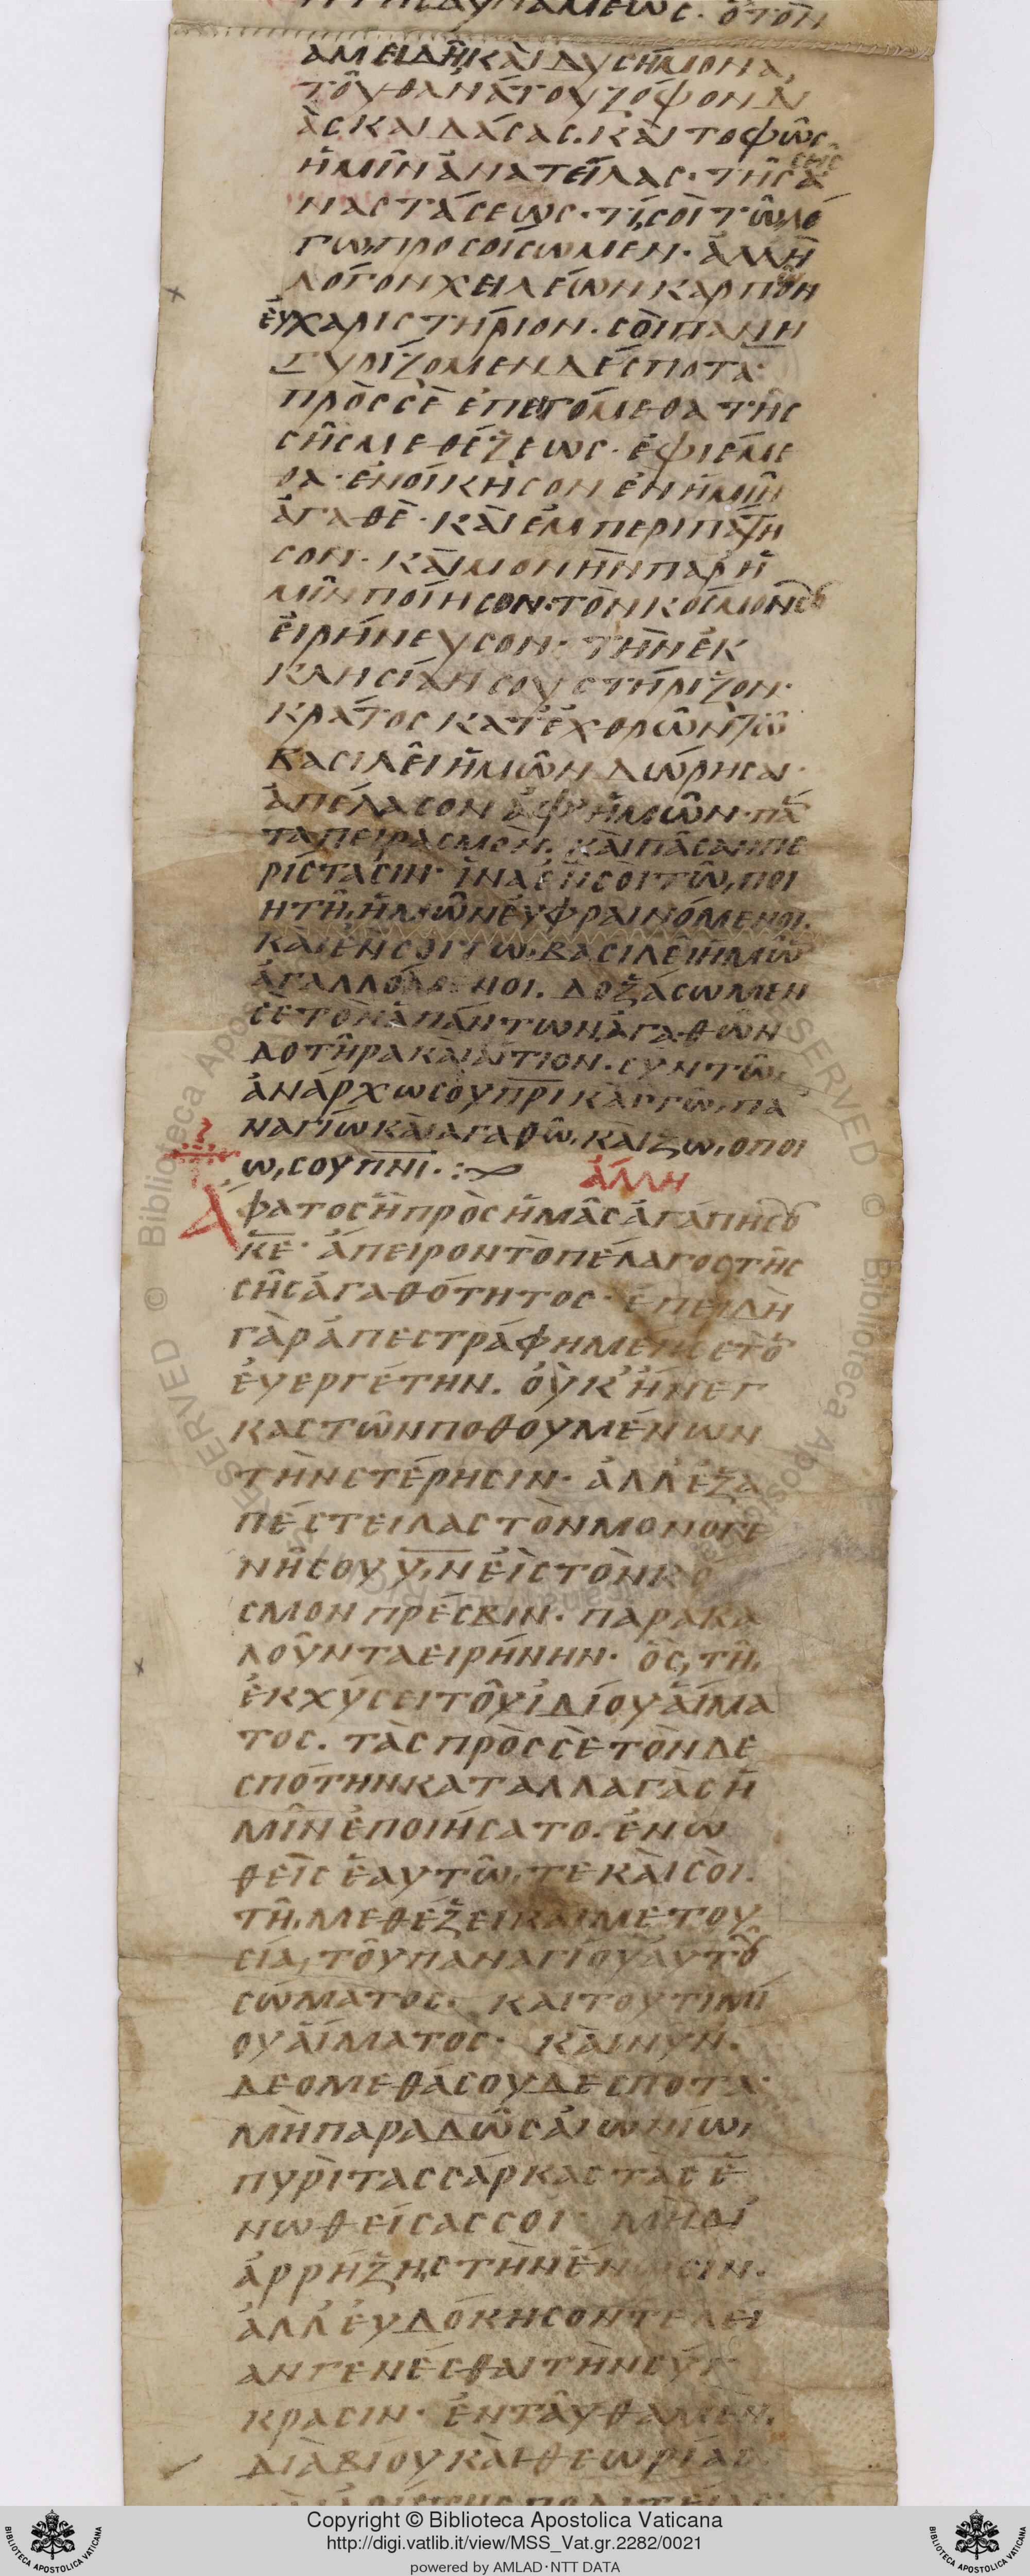 τῆς δυνάμεως. ὁ τὸν
ἀμειδῆ καὶ δυσήμονα,
τοῦ θανάτου ζόφον δι
ὰς καιδάσας. καὶ το φῶς
ἡμῖν ἀνατείλας· τῆς ἀ
ναστάσεως· τί σοὶ τῶ λό
γω, προσοίσωμεν· ἀλλ ἢ
λόγον χειλέων καρπὸν
ἐυχαριστήριον. σοὶ πανη
γυρίζομεν δέσποτα·
πρὸς σὲ ἐπειγόμεθα τῆς
σῆς μεθέξεως· ἐφιέμε
θα· ἐνοίκησον ἐν ἡμῖν
ἀγαθὲ· καὶ ἐμπεριπάτη
σον· καὶ μονὴν παρ ἡ
μῖν ποίησον· τὸν κόσμον σου
ἐιρήνευσον· τὴν ἐκ
κλησίαν σου στήριξον·
κράτος κατ ἐχθρῶν τῶ
βασιλεῖ ἡμῶν δώρησαι·
ἀπέλασον ἀφ ἡμῶν· πά
τα πειρασμὸν. καὶ πᾶσαν πε
ρίστασιν· ἵνα ἐν σοὶ τῶ, ποι
ητῆ, ἡμῶν ἐυφραινόμενοι.
καὶ ἐν σοὶ τω, βασιλεῖ ἡμῶν
ἀγαλλόμενοι. δοξάσωμεν
σὲ τὸν ἁπάντων, ἀγαθῶν
δοτῆρα καὶ ἄιτιον. σὺν τῶ,
ἀνάρχω σου πρι καὶ τῶ, πα
ναγίω καὶ αγαθῶ, καὶ ζω, οποι
ω, σου πνι. :
ἄλλη
Ἄφατος ἡ πρὸς ἡμᾶς ἀγάπη σου
κε· ἄπειρον τὸ πέλαγος τῆς
σῆς ἀγαθότητος· ἐπειδὴ
γὰρ ἀπεστράφημεν σε τὸν
ἐυεργέτην. ὀυκ ἤνεγ
κας τῶν ποθουμένων
τὴν στέρησιν· ἀλλ ἐξα
πέστειλας τὸν μονογε
νῆ σου υν ἐις τὸν κό
σμον πρέσβιν· παρακα
λοῦντα ειρήνην· ὃς, τῆ,
ἐκχύσει τοῦ ἰδίου ἅιμα
τος. τὰς πρὸς σὲ τὸν δε
σπότην καταλλαγὰς ἡ
μῖν ἐποιήσατο. ἑνω
θεὶς ἑαυτῶ, τε καὶ σοὶ.
τῆ, μεθέξει καὶ μετου
σία, τοῦ παναγίου ἀυτοῦ
σώματος. και του τιμί
ου ἅιματος· καὶ νῦν.
δεομεθά σου δεσποτα·
μὴ παραδῶς ἀιωνίω,
πυρὶ τας σάρκας τὰς ἑ
νωθείσας σοι· μὴ δι
ἀρρήξης τὴν ἕνωσιν.
ἀλλ ἐυδόκησον τελεί
αν γενέσθαι τὴν σύγ
κρασιν· ἐνταῦθα μὲν.
διὰ βίου καὶ θεωρίας
Copyright © Biblioteca Apostolica Vaticana
http://digi.vatlib.it/view/MSS_Vat.gr.2282/0021
powered by AMLAD·NTT DATA